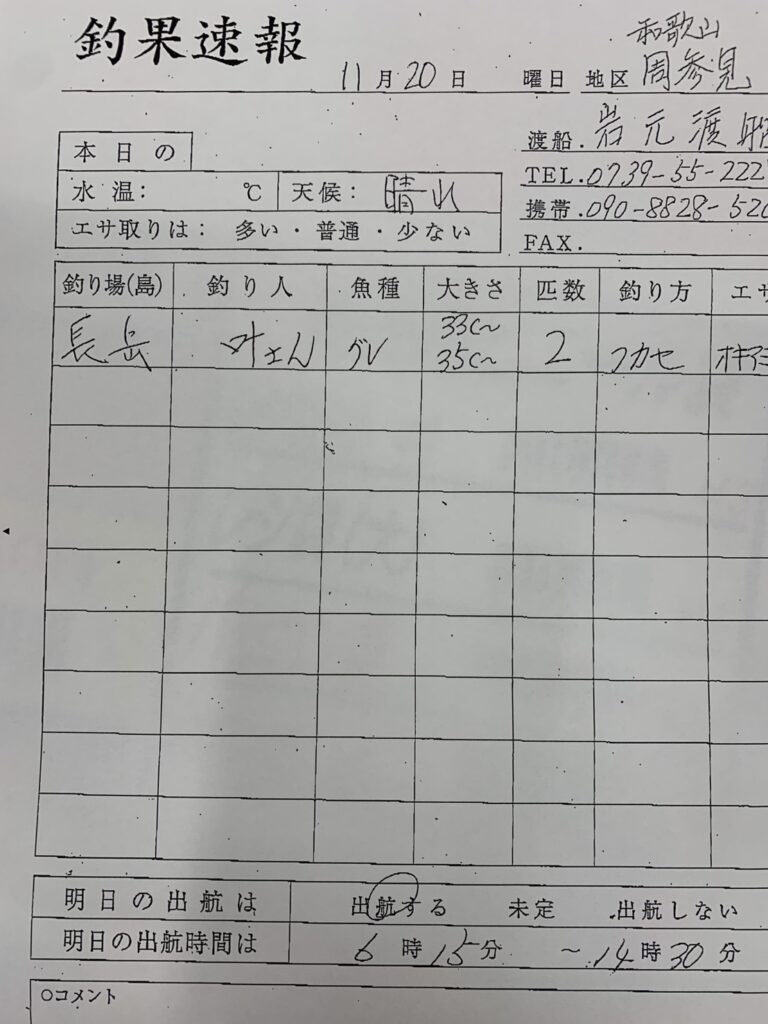 釣果速報
和歌山
11月20日 曜日 地区 周参見
渡船. 岩元渡船
TEL. 0739-55-222
携帯. 090-8828-520
FAX.
本日の
水温: ℃ 天候: 晴れ
エサ取りは: 多い・普通・少ない
釣り場(島) 釣り人 魚種 大きさ 匹数 釣り方 エサ
33c~
長岳 叶さん グレ 35c~ 2 フカセ オキアミ
明日の出航は 出航する 未定 出航しない
明日の出航時間は 6時15分 ~14時30分
○コメント